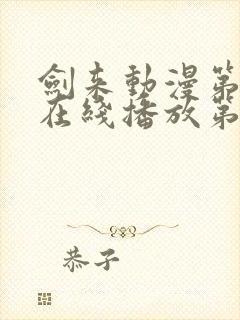 劍来動漫第
在綫播放第
恭子